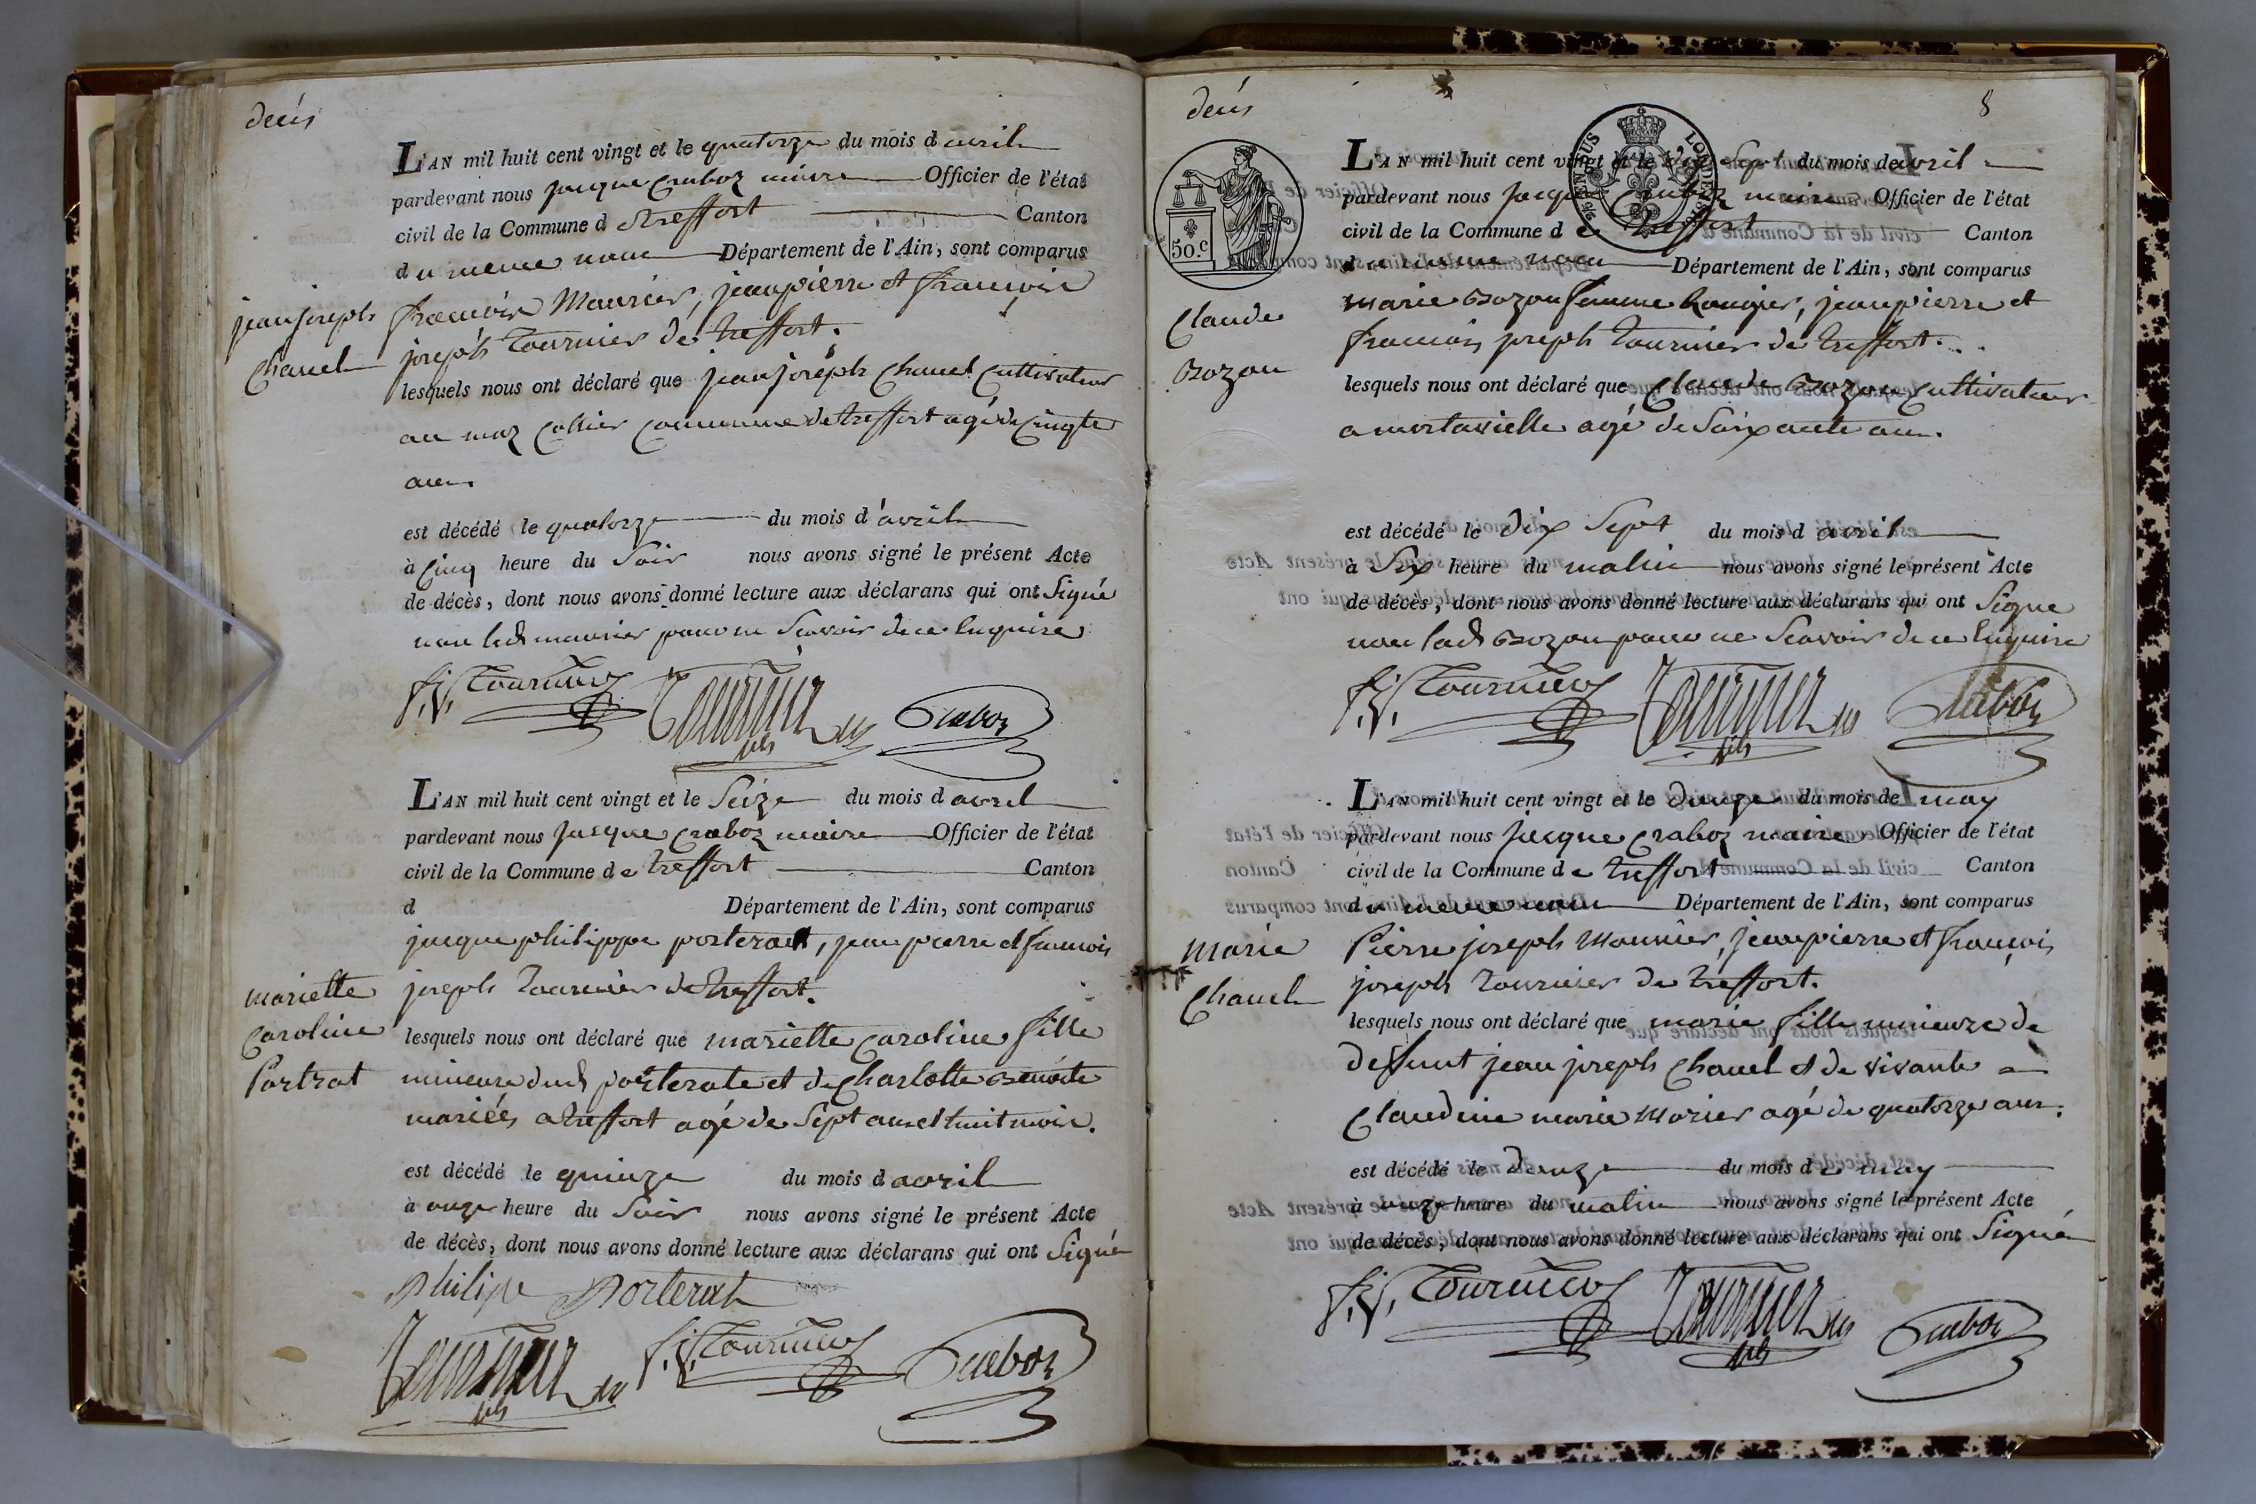 décès
L'AN mil huit cent vingt et le quatorze du mois d avril
pardevant nous jacque Craboz maire Officier de l'état
civil de la Commune d etreffort Canton
du meme nom Département de l'Ain, sont comparus
jean joseph
Chanel
francois Maurier, jean pierre et francois
joseph Tournier de treffort.
lesquels nous ont déclaré que jean joseph Chanel Cultivateur
au maz Collier Commune de treffort agé de Cinqte
ans.
est décédé le quatorze du mois d'avril
à Cinq heure du Soir nous avons signé le présent Acte
de décès, dont nous avons donné lecture aux déclarans qui ont Signé
non led. maurier pour ne Scavoir de ce Enquise
f. j. Tournier Tournier fils Craboz
L'AN mil huit cent vingt et le Seize du mois d avril
pardevant nous jacque Craboz maire Officier de l'état
civil de la Commune de treffort Canton
d Département de l'Ain, sont comparus
jacque philippe porterat, jean pierre et francois
joseph Tournier de treffort.
mariette
Caroline
Portrat
lesquels nous ont déclaré que mariette Caroline fille
mineure dud. porterate et de Charlotte Benoite
mariées a treffort agé de Sept ans et huit mois.
est décédé le quinze du mois d avril
à onze heure du Soir nous avons signé le présent Acte
de décès, dont nous avons donné lecture aux déclarans qui ont Signé
Philipe Porterat
Tournier fils f. j. Tournier Craboz
décès
8
L'AN mil huit cent vingt et le dix Sept du mois de avril
pardevant nous jacque Craboz maire Officier de l'état
civil de la Commune de treffort Canton
du meme nom Département de l'Ain, sont comparus
50.c
Claude
Bozon
marie Bozon femme Rougier, jean pierre et
francois joseph Tournier de treffort.
lesquels nous ont déclaré que Claude Bozon Cultivateur
a montavielle agé de Soixante ans.
est décédé le dix Sept du mois d avril
à Six heure du matin nous avons signé le présent Acte
de décès, dont nous avons donné lecture aux déclarans qui ont Signe
non lad. Bozon pour ne Scavoir de ce Enquise
f. j. Tournier Tournier fils Craboz
L'AN mil huit cent vingt et le douze du mois de may
pardevant nous jacque Craboz maire Officier de l'état
civil de la Commune de treffort Canton
du meme nom Département de l'Ain, sont comparus
marie
Chanel
Pierre joseph Maunier, jean pierre et francois
joseph Tournier de treffort.
lesquels nous ont déclaré que marie fille mineure de
deffunt jean joseph Chanel et de vivante
Claudine marie Morier agé de quatorze ans.
est décédé le douze du mois de may
à onze heure du matin nous avons signé le présent Acte
de décès, dont nous avons donné lecture aux déclarans qui ont Signé
f. j. Tournier Tournier fils Craboz